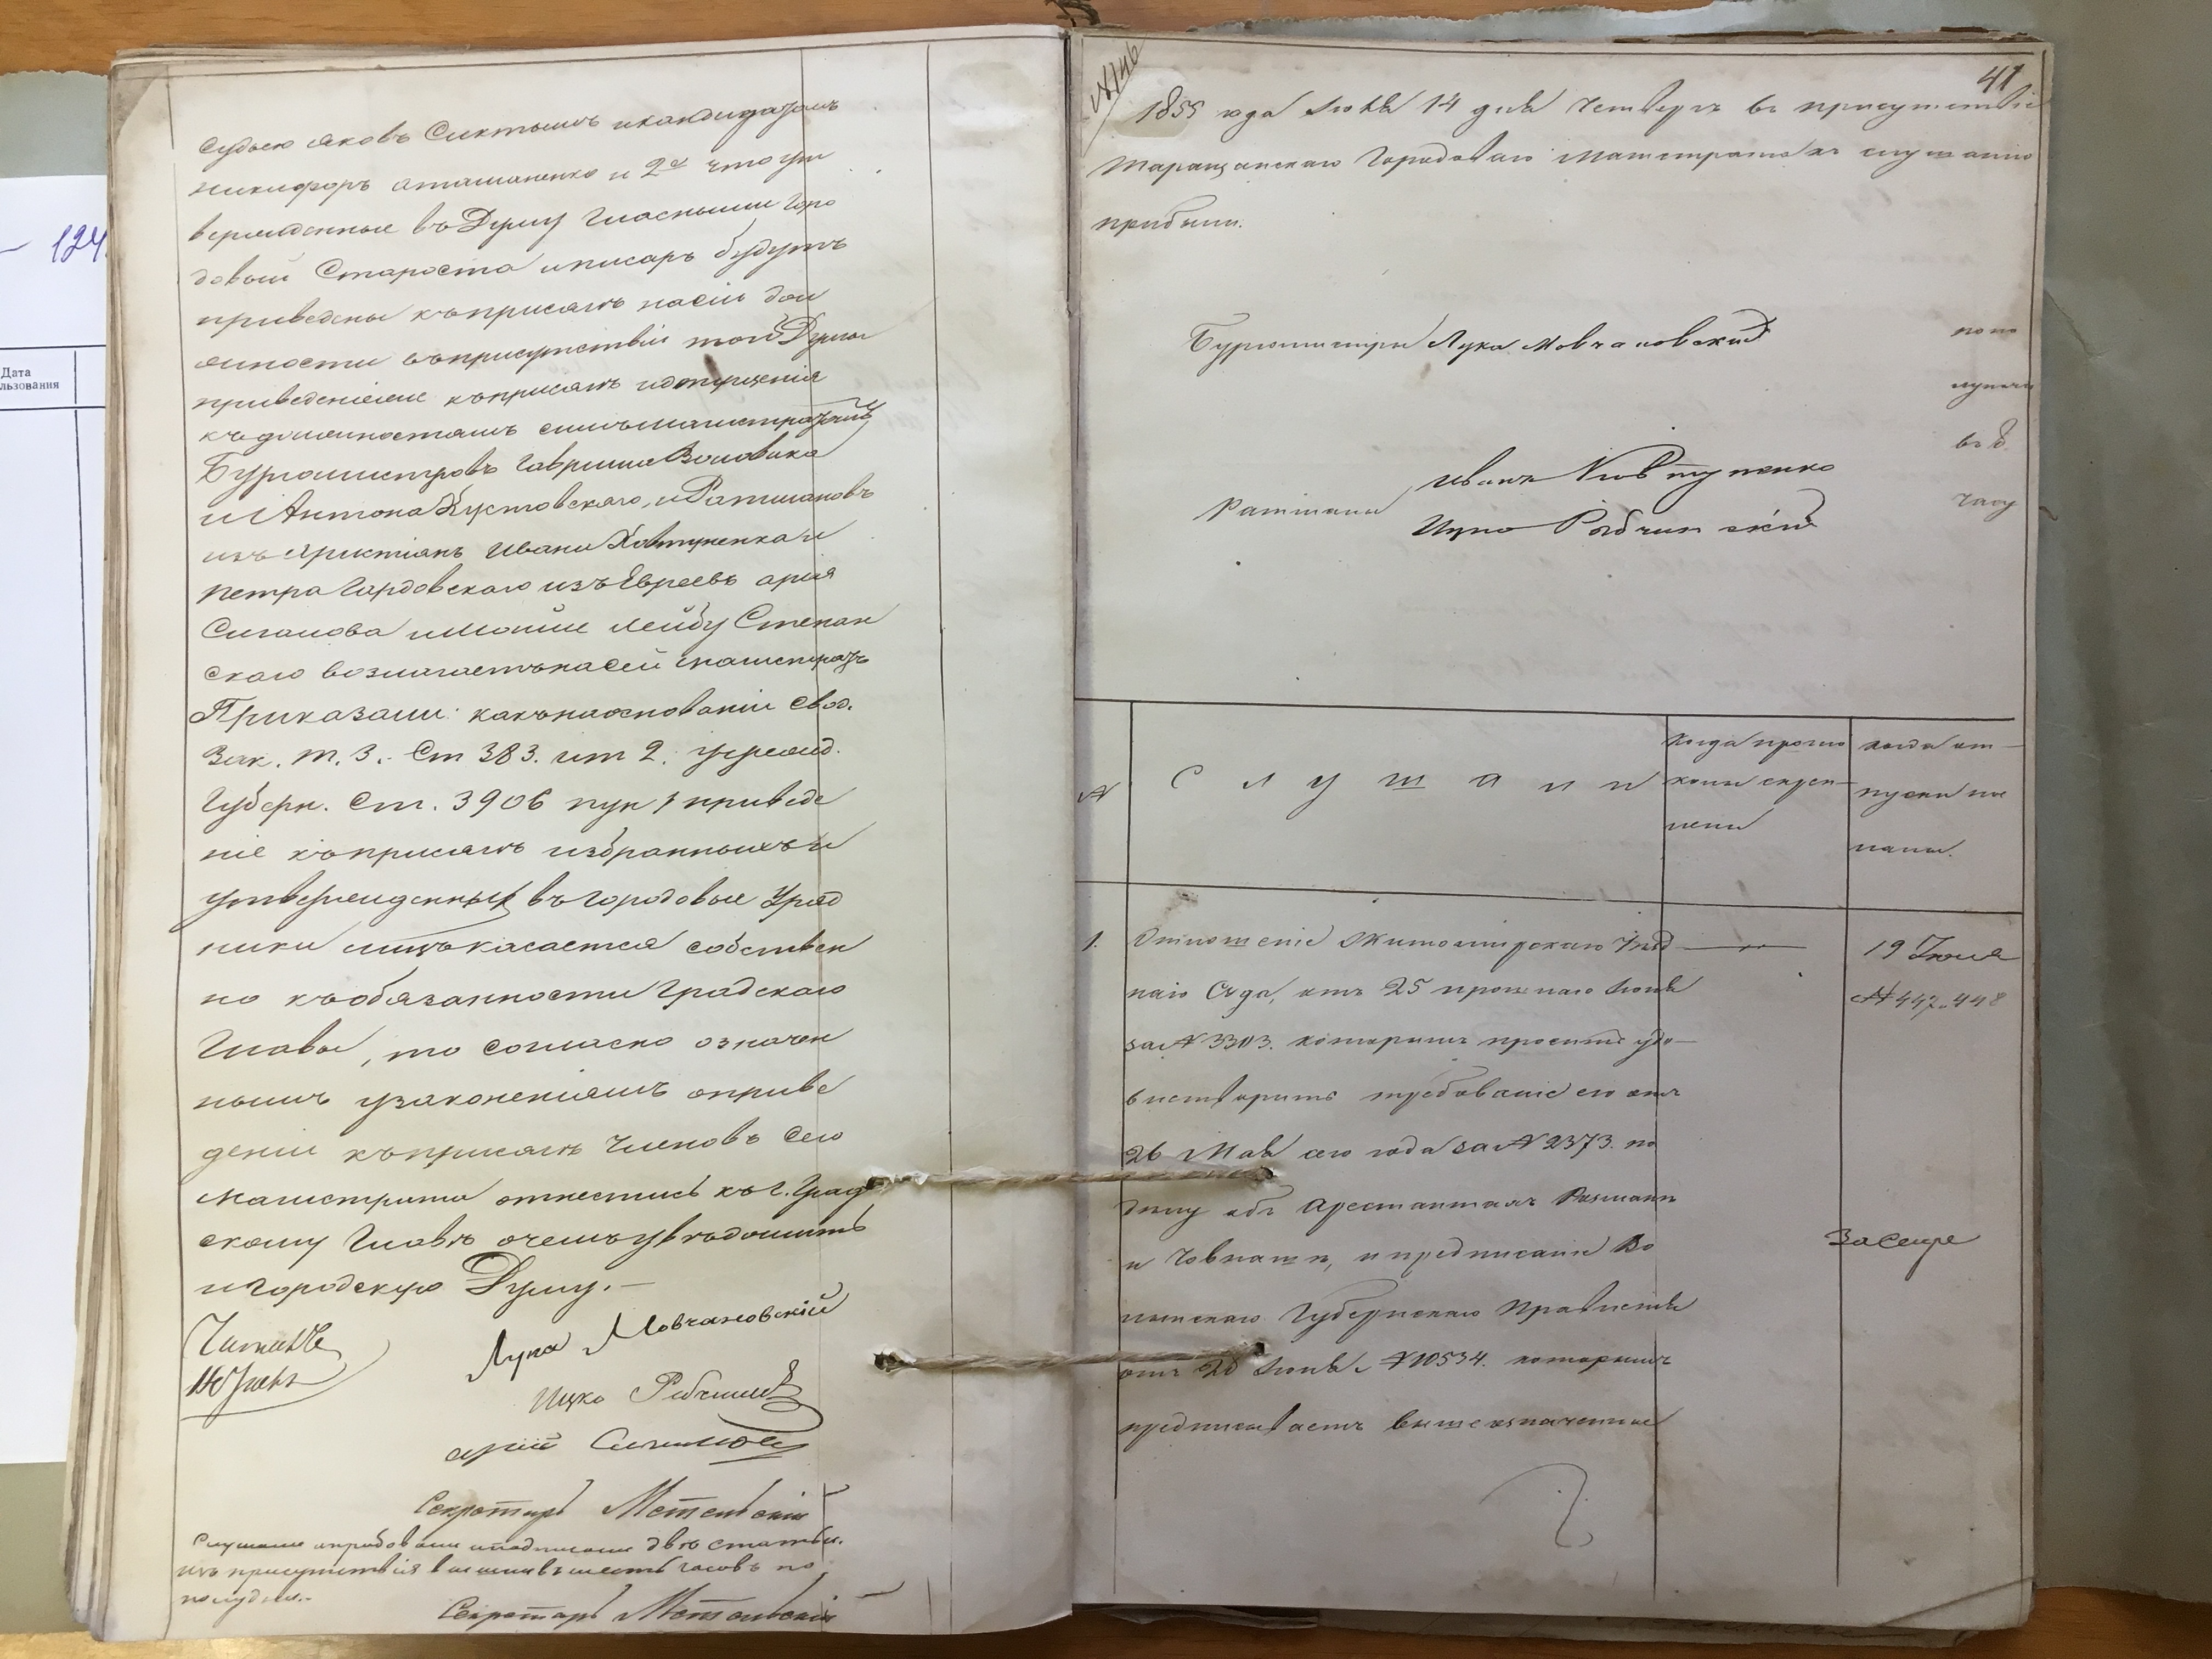 124
Дата
льзования
судьею Яковъ Сиктышъ и кандидатомъ
Никифоръ Аташаненко и 2е что ут
вержденные въ Думу Гласными Горо
довый Староста и писарь будутъ
приведены къ присягѣ на сіи дол
жности въ присутствіи той Думы
приведеніемъ къ присягѣ и допущенія
къ должностямъ симъ Магистратомъ
Бургомистровъ Гаврила Воловика
и Антона Кустовскаго, и Ратмановъ
изъ христіанъ Ивана Ковтуненка и
Петра Гордовскаго изъ Евреевъ Арія
Сигалова и Мошие Лейбу Степан
скаго возлагаетъ на сей Магистратъ
Приказали: какъ на основаніи Свод.
Зак. т. 3. Ст 383. и т 2. учрежд.
Губерн. Ст. 3906 пун 1 приведе
ніе къ присягѣ избранныхъ и
утвержденныхъ въ городовые Уряд
ники лишь касается собствен
но къ обязанности Градскаго
Главы, то согласно означен
нымъ узаконеніямъ о приве
деніи къ присягѣ Членовъ сего
Магистрата отнестись къ г. Град
скому Главѣ о чемъ увѣдомить
и городскую Думу.—
Читалъ
Лука Мовчановскій
Ицко Рабчинскій
Арій Сигаловъ
Секретарь Метельскій
Слушали апробовали и подписали двѣ статьи.
изъ присутствія вышли въ шесть часовъ по
полудни.-
Секретарь Метельскій
№146
41
1855 года Іюля 14 дня Четвергъ въ присутствіе
Таращанскаго Городоваго Магистрата къ слушанію
прибыли.
Бургомистры Лука Мовчановскій
по по
лудни
въ
часу
Иванъ Ковтуненко
Ратманы
Ицко Рабчинскій
№ Слушали
Когда прото
колы скреп
лены
Когда от—
пуски пи
саны.
1. Отношеніе Житомирскаго Уезд
наго Суда, отъ 25 прошлаго Іюня
за № 3303. которымъ проситъ удо—
влетворить требованіе его отъ
26 Мая сего года за № 2373. по
делу объ Арестантахъ
и предписаніе Во
лынскаго Губернскаго Правленія
отъ 20 Іюня № 10534. которымъ
предписываетъ вышеозначенное
19 Іюля
№ 447. 448